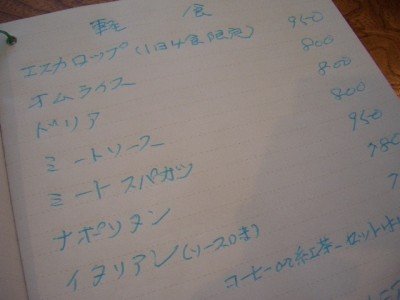 軽 食
エスカロップ(1日4食限定) 950
オムライス 800
ドリア 800
ミートソース 800
ミートスパカツ 950
ナポリタン 780
イタリアン(ソース味) 7
コーヒーor紅茶 セット